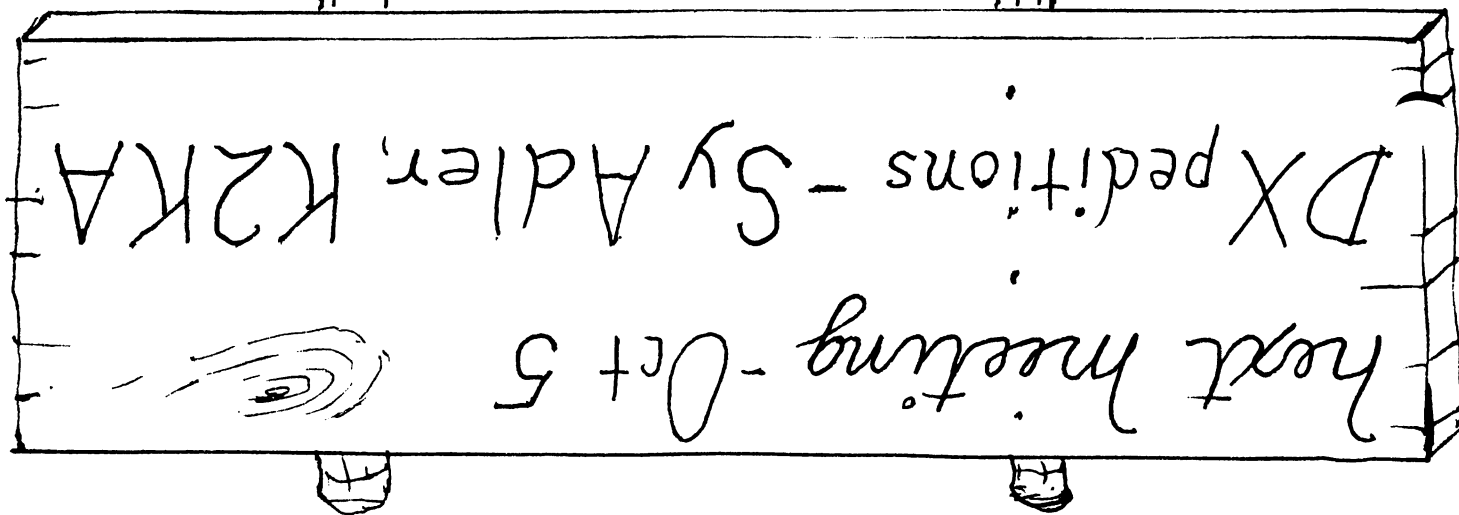 next meeting - Oct 5
DXpeditions - Sy Adler, K2KA